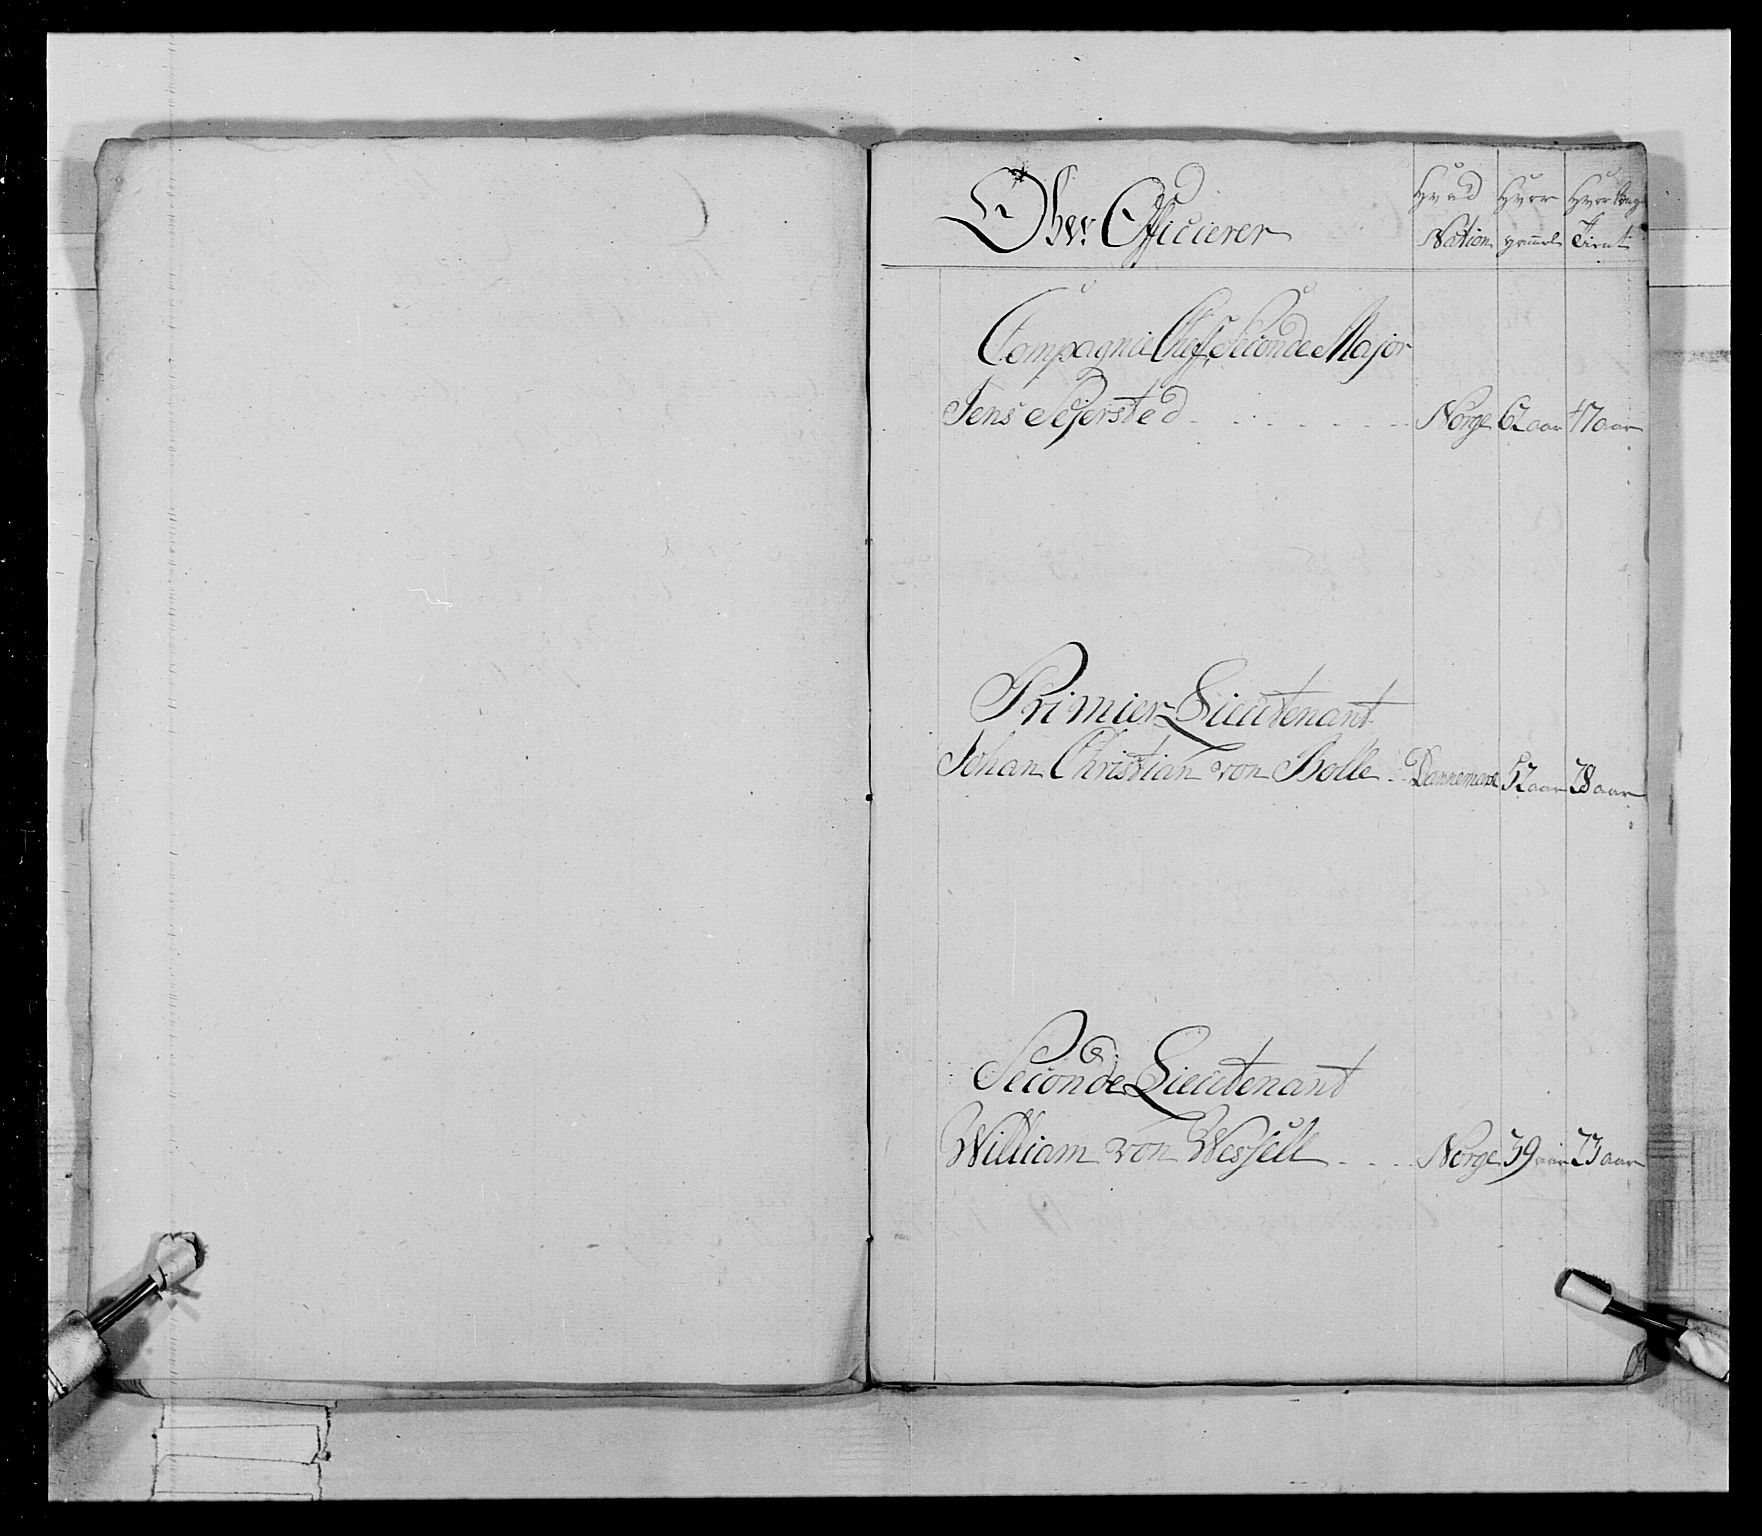 Ober Officierer
Hvad Nation
Hvor gammel
Hvor lang Tient
Compagnie Cheff, Seconde Major
Jens Pejersted Norge 62 aar 47 aar
Primier Lieutenant
Johan Christian von Bolle Dannemark 52 aar 28 aar
Seconde Lieutenant
William von Wessell Norge 39 aar 23 aar